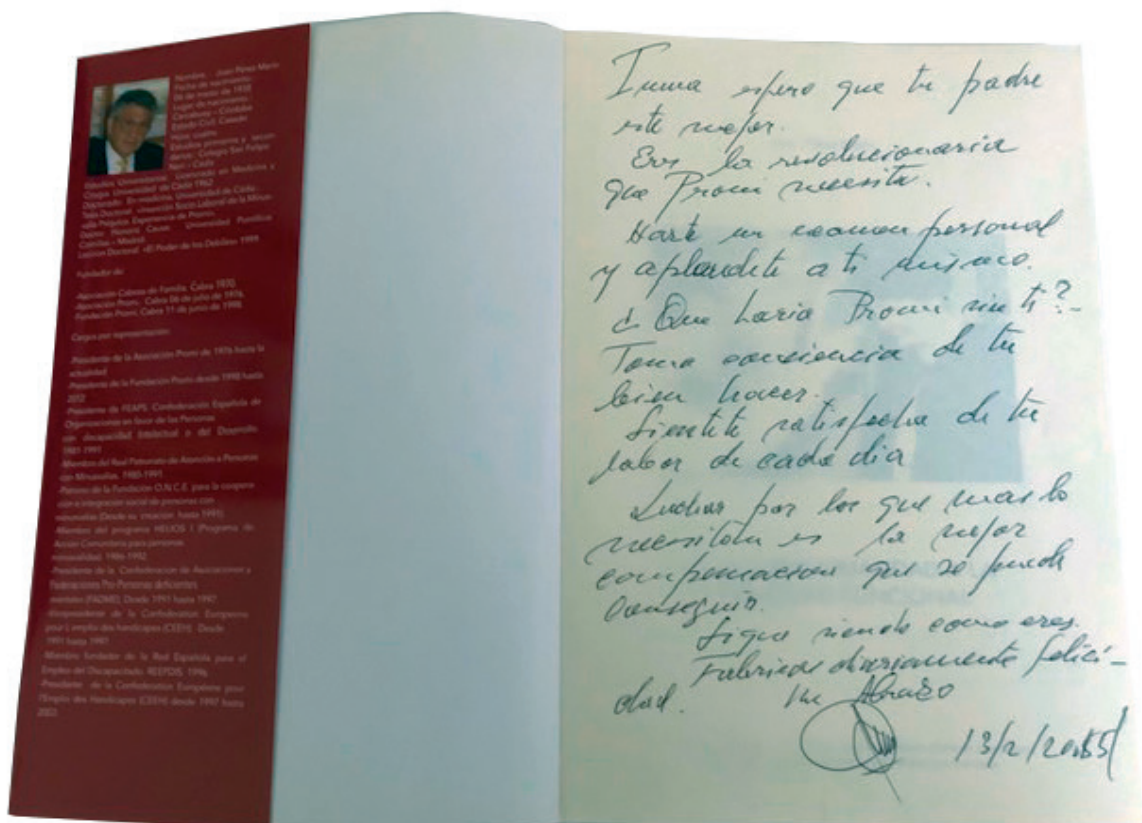 Nombre: Juan Pérez Marín
Fecha de nacimiento:
06 de marzo de 1935
Lugar de nacimiento:
Carcabuey - Córdoba
Estado Civil: Casado
Hijos: cuatro
Estudios primarios y secun-
darios: Colegio San Felipe
Neri - Cádiz
Estudios Universitarios: Licenciado en Medicina y
Cirugía. Universidad de Cádiz 1962
Doctorado: En medicina. Universidad de Cádiz.
Tesis Doctoral: Socio Laboral de la Minus-
valía Psíquica. Experiencia de Promi.
Doctor Honoris Causa: Universidad Pontificia
Comillas - Madrid
Lección Doctoral: «El Poder de los Débiles» 1999
Fundador de:
Asociación Cabras de Familia. Cabra 1970
-Asociación Promi. Cabra 06 de julio de 1976
-Fundación Promi. Cabra 11 de junio de 1998
Cargos por representación:
-Presidente de la Asociación Promi de 1976 hasta la
actualidad
-Presidente de la Fundación Promi desde 1998 hasta
2012
-Presidente de FEAPS -Confederación Española de
Organizaciones en favor de las Personas
con discapacidad Intelectual o del Desarrollo
1981-1991
-Miembro del Real Patronato de Atención a Personas
con Minusvalías. 1980-1991
-Patrono de la Fundación O.N.C.E. para la coopera-
ción e integración social de personas con
minusvalías (Desde su creación hasta 1991)
-Miembro del programa HELIOS I (Programa de
Acción Comunitaria para personas
minusvalidas). 1986-1992
-Presidente de la Confederación de Asociaciones y
Federaciones Pro Personas deficientes
mentales (FADME). Desde 1991 hasta 1997
-Vicepresidente de la Confederation Européene
pour l,emploi des handicapes (CEEH) -Desde
1991 hasta 1997
-Miembro fundador de la Red Española para el
Empleo del Discapacitado. REEFDIS. 1996
-Presidente de la Confederation Européene pour
l'Emploi des Handicapes (CEEH) desde 1997 hasta
2003
Inma espero que tu padre
esté mejor.
Eres la revolucionaria
que Promi necesita.
Harte un examen personal
y aplaudete a ti misma.
¿Que haria Promi sin ti?-
Toma conciencia de tu
bien hacer.
Sientete satisfecha de tu
labor de cada dia
Luchar por los que mas lo
necesitan es la mejor
compensacion que se puede
conseguir.
Sigue siendo como eres.
Fabricas diariamente felici-
dad. Un Abrazo